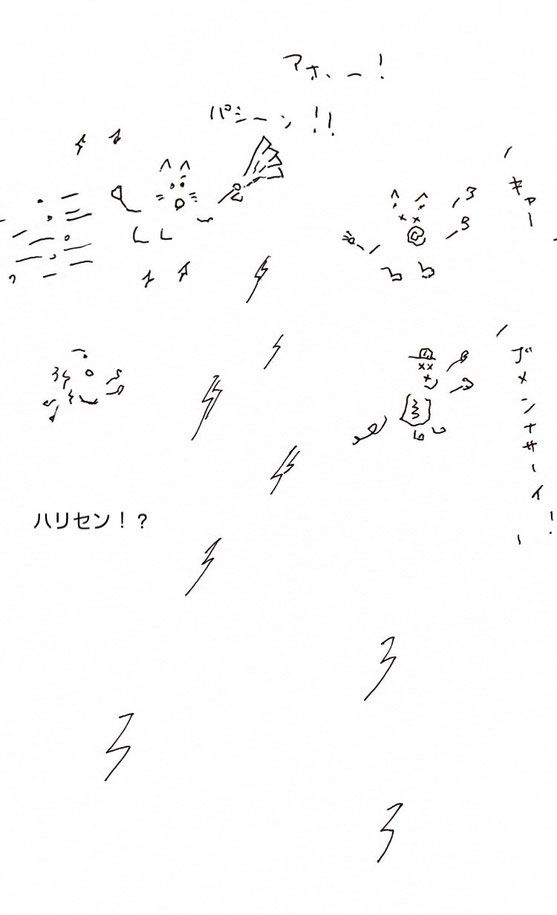 アホー！
パシーン!!
キャー
ゴメンナサーイ！
ハリセン！？